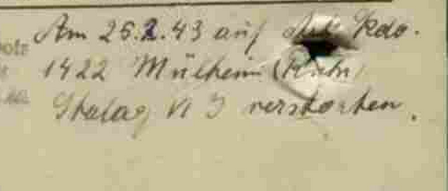 Am 25.2.43 auf Arb. Kdo.
1422 Mülheim (Ruhr)
Stalag VI J verstorben.